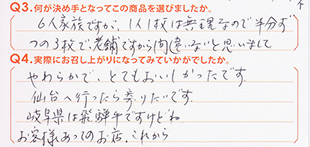 Q3.何が決め手となってこの商品を選びましたか。
6人家族ですが、1人1枚は無理なので半分ず
つの3枚で、老舗ですから間違いないと思いまして
Q4.実際にお召し上がりになってみていかがでしたか。
やわらかで、とてもおいしかったです。
仙台へ行ったら寄りたいです。
岐阜県は飛騨牛ですけどね
お客様あってのお店、これから